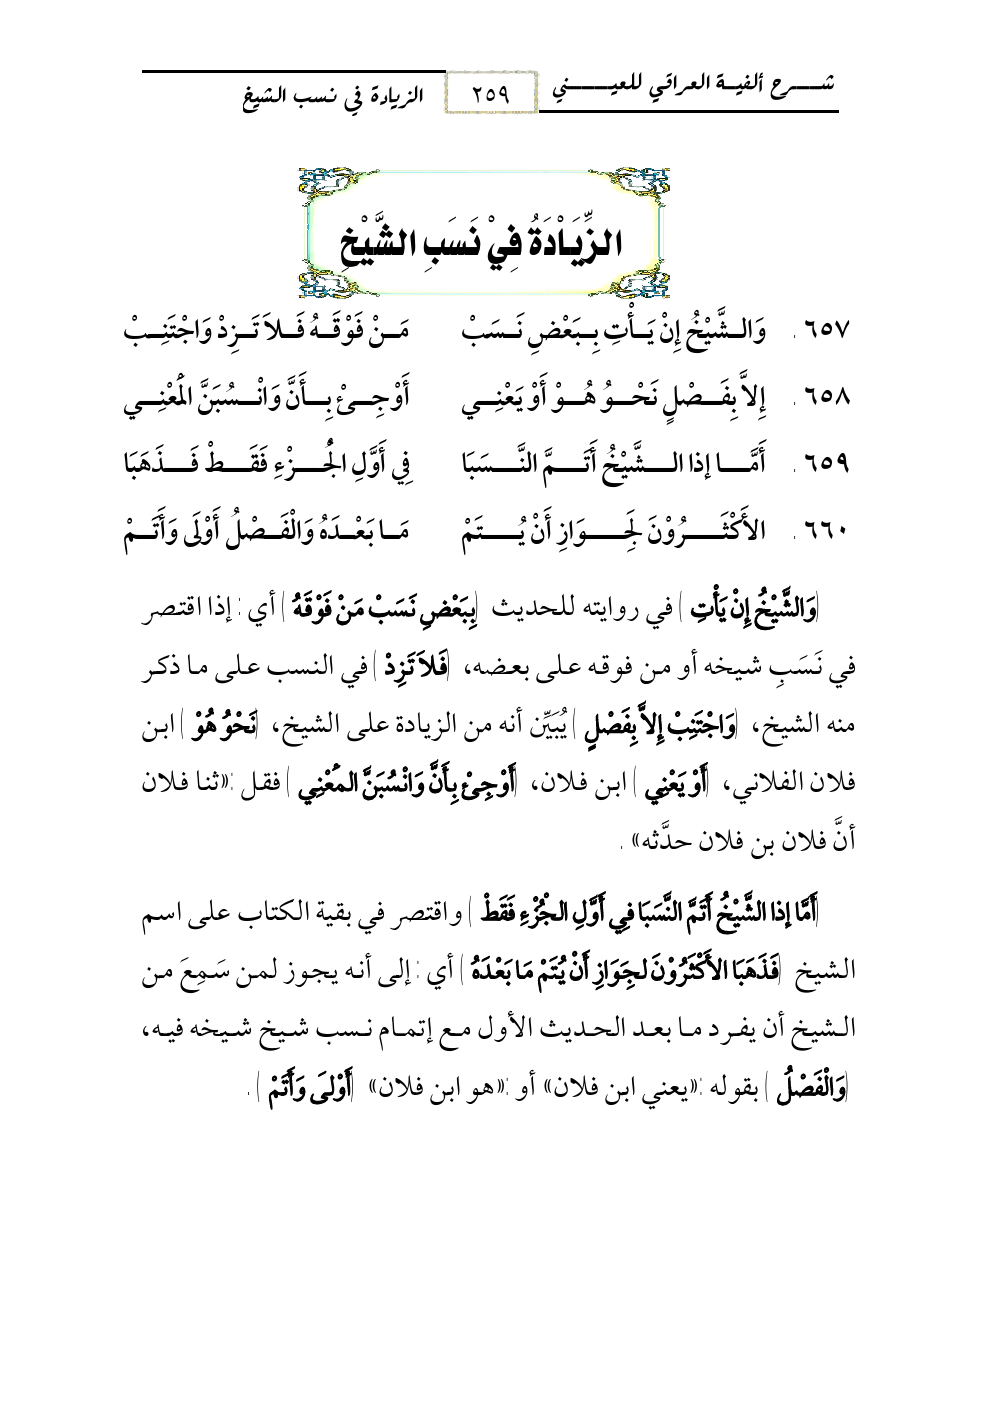 شرح ألفية العراقي للعيني
٢٥٩
الزيادة في نسب الشيخ
الزِّيَاْدَةُ فِيْ نَسَبِ الشَّيْخِ
٦٥٧ . وَالشَّيْخُ إِنْ يَأْتِ بِبَعْضِ نَسَبْ مَنْ فَوْقَهُ فَلاَ تَزِدْ وَاجْتَنِبْ
٦٥٨ . إِلاَّ بِفَصْلٍ نَحْوُ هُوْ أَوْ يَعْنِي أَوْ جِئْ بِأَنَّ وَانْسُبَنَّ الْمَعْنِي
٦٥٩ . أَمَّا إذا الشَّيْخُ أَتَمَّ النَّسَبَا فِي أَوَّلِ الْجُزْءِ فَقَطْ فَذَهَبَا
٦٦٠ . الأَكْثَرُوْنَ لِجَوَازِ أَنْ يُتَمْ مَا بَعْدَهُ وَالْفَصْلُ أَوْلَى وَأَتَمْ
(وَالشَّيْخُ إِنْ يَأْتِ) في روايته للحديث (بِبَعْضِ نَسَبْ مَنْ فَوْقَهُ) أي: إذا اقتصر
في نَسَبِ شيخه أو من فوقه على بعضه، (فَلاَ تَزِدْ) في النسب على ما ذكر
منه الشيخ، (وَاجْتَنِبْ إِلاَّ بِفَصْلٍ) يُبَيِّن أنه من الزيادة على الشيخ، (نَحْوُ هُوْ) ابن
فلان الفلاني، (أَوْ يَعْنِي) ابن فلان، (أَوْ جِئْ بِأَنَّ وَانْسُبَنَّ المُعْنِي) فقل: «ثنا فلان
أنَّ فلان بن فلان حدَّثه» .
(أَمَّا إذا الشَّيْخُ أَتَمَّ النَّسَبَا فِي أَوَّلِ الْجُزْءِ فَقَطْ) واقتصر في بقية الكتاب على اسم
الشيخ (فَذَهَبَا الأَكْثَرُوْنَ لجَوَازِ أَنْ يُتَمْ مَا بَعْدَهُ) أي: إلى أنه يجوز لمن سَمِعَ من
الشيخ أن يفرد ما بعد الحديث الأول مع إتمام نسب شيخ شيخه فيه،
(وَالْفَصْلُ) بقوله: «يعني ابن فلان» أو: «هو ابن فلان» (أَوْلىَ وَأَتَمْ) .